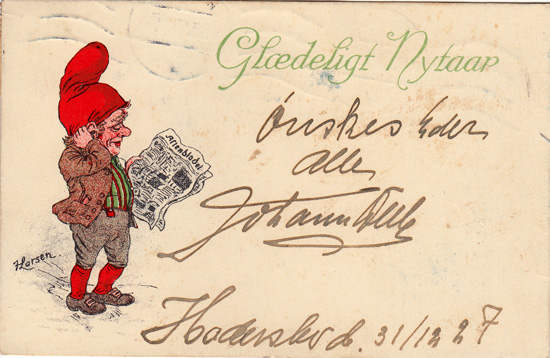 Glædeligt Nytaar
Aftenbladet
Ønskes Eder
alle
Johann
Larsen
Haderslev d. 31/12 27